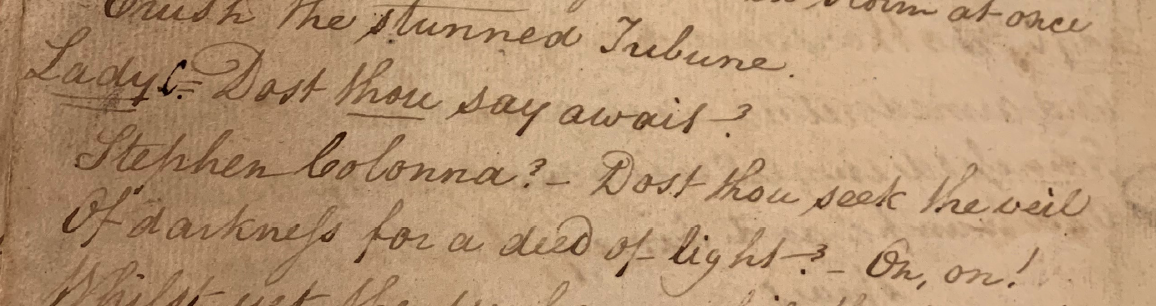 Crush the stunned Tribune. at once
Lady C. Dost thou say await?
Stephen Colonna? – Dost thou seek the veil
Of darkneſs for a deed of light? – On, on!
Whilst yet the